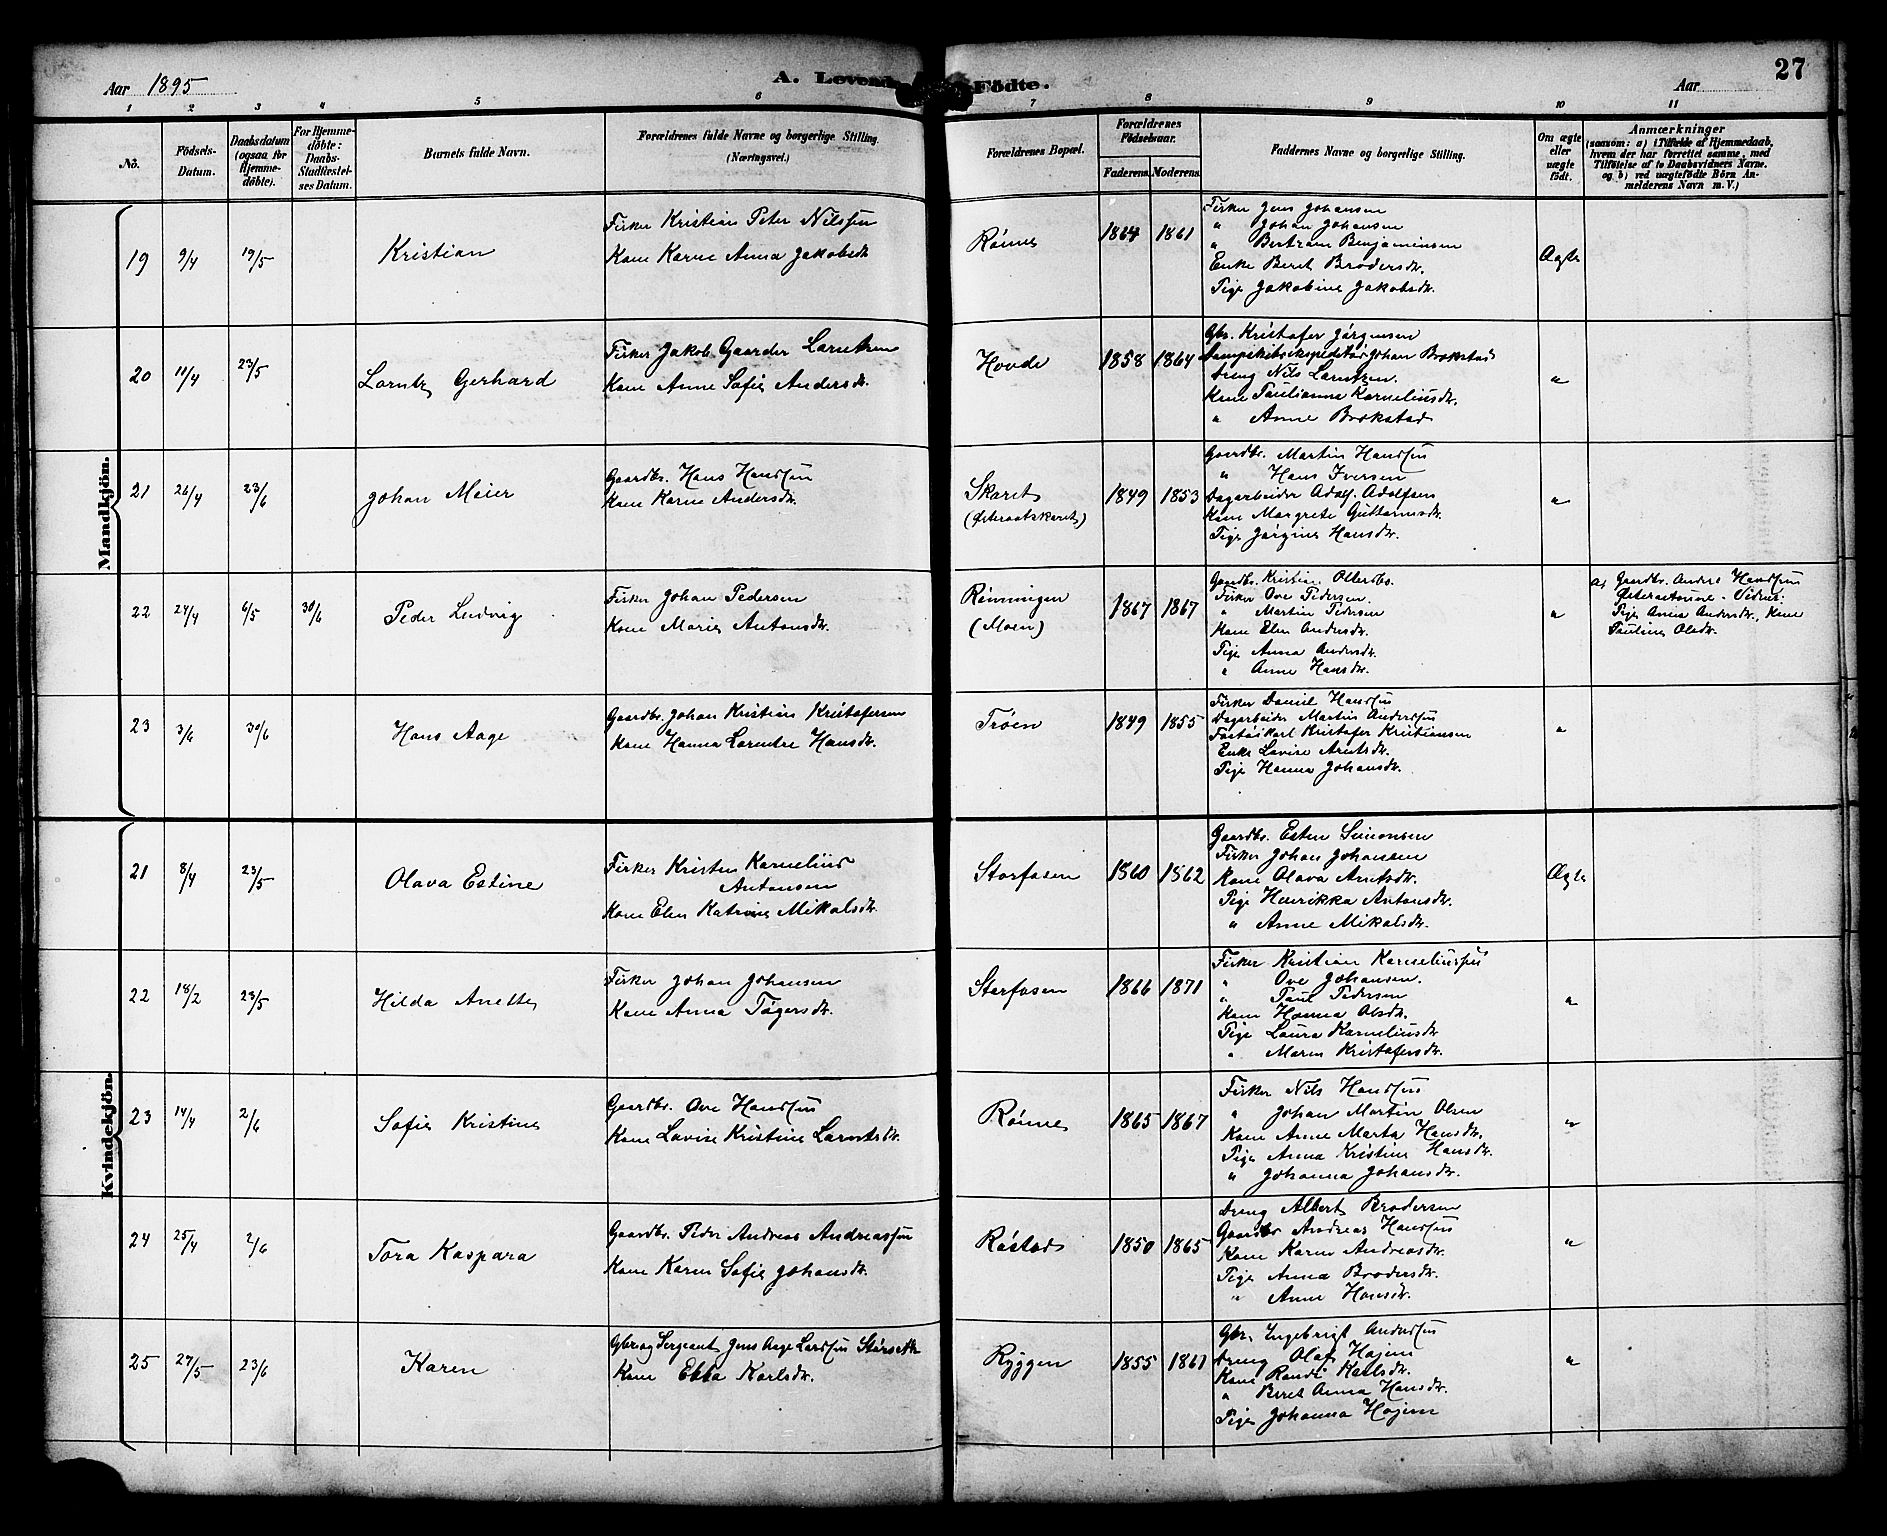 Aar 1895
A. Levende Födte.
Aar
27
1 2 3 4 5 6 7 8 9 10 11
Nö.
Födsels-Datum.
Daabsdatum (ogsaa for Hjemmedöbte).
For Hjemmedöbte: Daabs-Stadfæstelses Datum.
Barnets fulde Navn.
Forældrenes fulde Navne og borgerlige Stilling. (Næringsvei.)
Forældrenes Bopæl.
Forældrenes Födselsaar.
Faderens. Moderens.
Faddernes Navne og borgerlige Stilling.
Om ægte eller uægte födt.
Anmærkninger
(saasom: a) i Tilfælde af Hjemmedaab, hvem der har forrettet samme, med Tilföielse af to Daabsvidners Navne, og b) ved uægtefödte Börn Anmelderens Navn m. V.)
Mandkjön.
19 9/4 19/5 Kristian
Fisker Kristian Peter Nilssen
Kone Karne Anna Jakobsdr.
Rønne 1864 1861
Fisker Jens Johansen
" Johan Johansen
" Bertram Benjaminsen
Enke Beret Brodersdr.
Pige Jakobine Jakobsdr.
Ægte
20 11/4 23/5 Lorntz Gerhard
Fisker Jakob Gaarder Lorntzen
Kone Anne Sofie Andersdr.
Hovde 1858 1864
Gbr. Kristofer Jørgensen
Dampskibsekspeditør Johan Brokstad
Dreng Nils Lorntzen.
Kone Paulianna Korneliusdr.
" Anne Brokstad
"
21 26/4 23/6 Johan Meier
Gaardbr. Hans Hanssen
Kone Karne Andersdr.
Skaret
(Østeraatskaret)
1849 1853
Gaardbr. Martin Hanssen
" Hans Iversen
Dagarbeider Adolf Adolfsen
Kone Margrete Guttormsdr.
Pige Jørgine Hansdr.
"
22 24/4 6/5 30/6 Peder Ludvig
Fisker Johan Pedersen
Kone Marie Antonsdr.
Rønningen
(Moen)
1867 1867
Gaardbr. Kristian Ellersbo.
Fisker Ove Pedersen.
" Martin Pedersen
Kone Elen Andersdr.
Pige Anna Andersdr.
" Anne Hansdr.
"
Af Gaardbr. Anders Hanssen
Vidner:
Pige Anna Andersdr., Kone
Pauline Olsdr.
23 3/6 30/6 Hans Aage
Gaardbr. Johan Kristian Kristofersen
Kone Hanna Lorntze Hansdr.
Trøen 1849 1855
Fisker Daniel Hanssen
Dagarbeider Martin Anderssen
Kristofer Kristiansen
Enke Lovise Arntsdr.
Pige Hanna Johansdr.
"
Kvindekjön.
21 8/4 23/5 Olava Estine
Fisker Kristen Kornelius
Antonsen
Kone Elen Katrine Mikalsdr.
Storfosen 1860 1862
Gaardbr. Esten Simonsen
Fisker Johan Johansen
Kone Olava Arntsdr.
Pige Henrikka Antonsdr.
" Anne Mikalsdr.
Ægte
22 18/2 23/5 Hilda Anette
Fisker Johan Johansen
Kone Anna Tøgersdr.
Storfosen 1866 1871
Fisker Kristian Korneliussen
" Ove Johansen.
" Paul Pedersen
Kone Hanna Olsdr.
Pige Laura Korneliusdr.
" Maren Kristofersdr.
"
23 14/4 2/6 Sofie Kristine
Gaardbr. Ove Hanssen
Kone Lovise Kristine Lorntsdr.
Rønne 1865 1867
Fisker Nils Hanssen
" Johan Martin Olsen
Kone Anne Marta Hansdr.
Pige Anna Kristine Hansdr.
" Johanna Johansdr.
"
24 25/4 2/6 Tora Kaspara
Gaardbr. Peder Andreas Andreassen
Kone Karen Sofie Johansdr.
Røstad 1850 1865
Dreng Albert Brodersen
Gaardbr Andreas Hanssen
Kone Karen Andreasdr.
Pige Anna Brodersdr.
" Anne Hansdr.
"
25 27/5 23/6 Karen
Gbr og Sergeant Jens Aage Larssen Størseth
Kone Ebba Karlsdr.
Ryggen 1855 1861
Gbr. Engebrigt Anderssen
Dreng Olaf Højem
Kone Randi Karlsdr.
" Beret Anna Hansdr.
Pige Johanna Højem
"